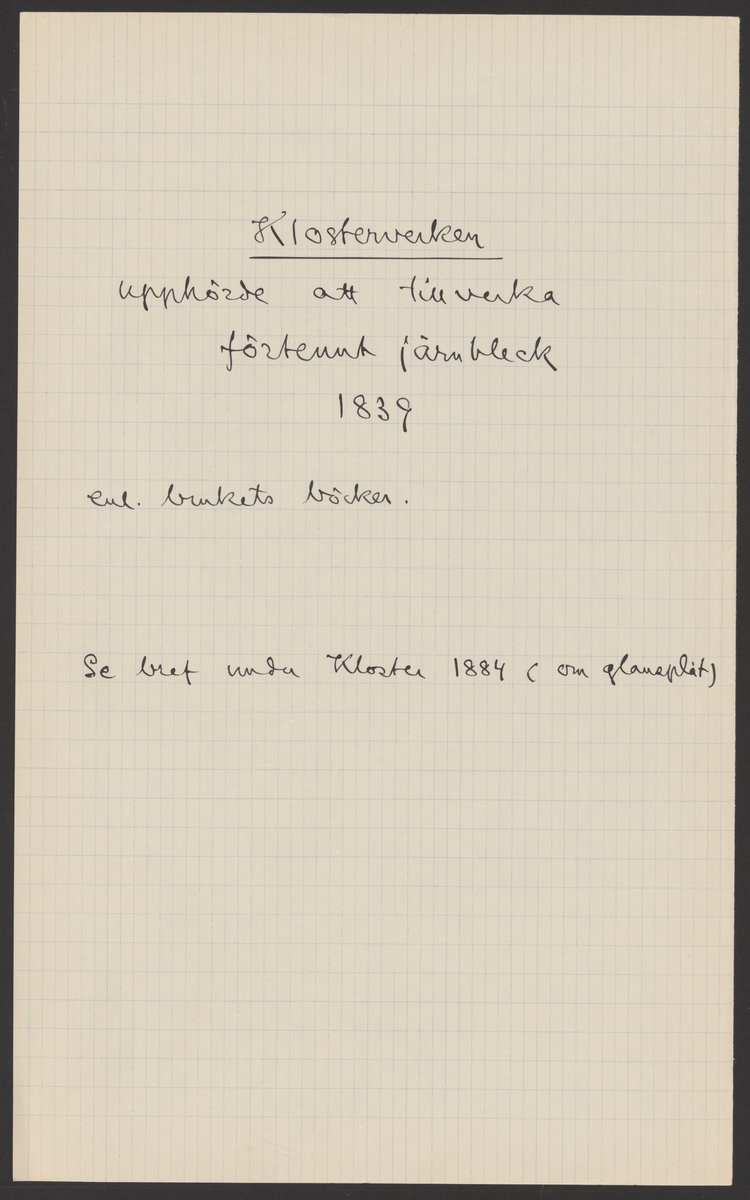 Klosterverken
upphörde att tillverka
förtennt järnbleck
1839
enl. brukets böcker.
Se bref under Kloster 1884 (om glansplåt)